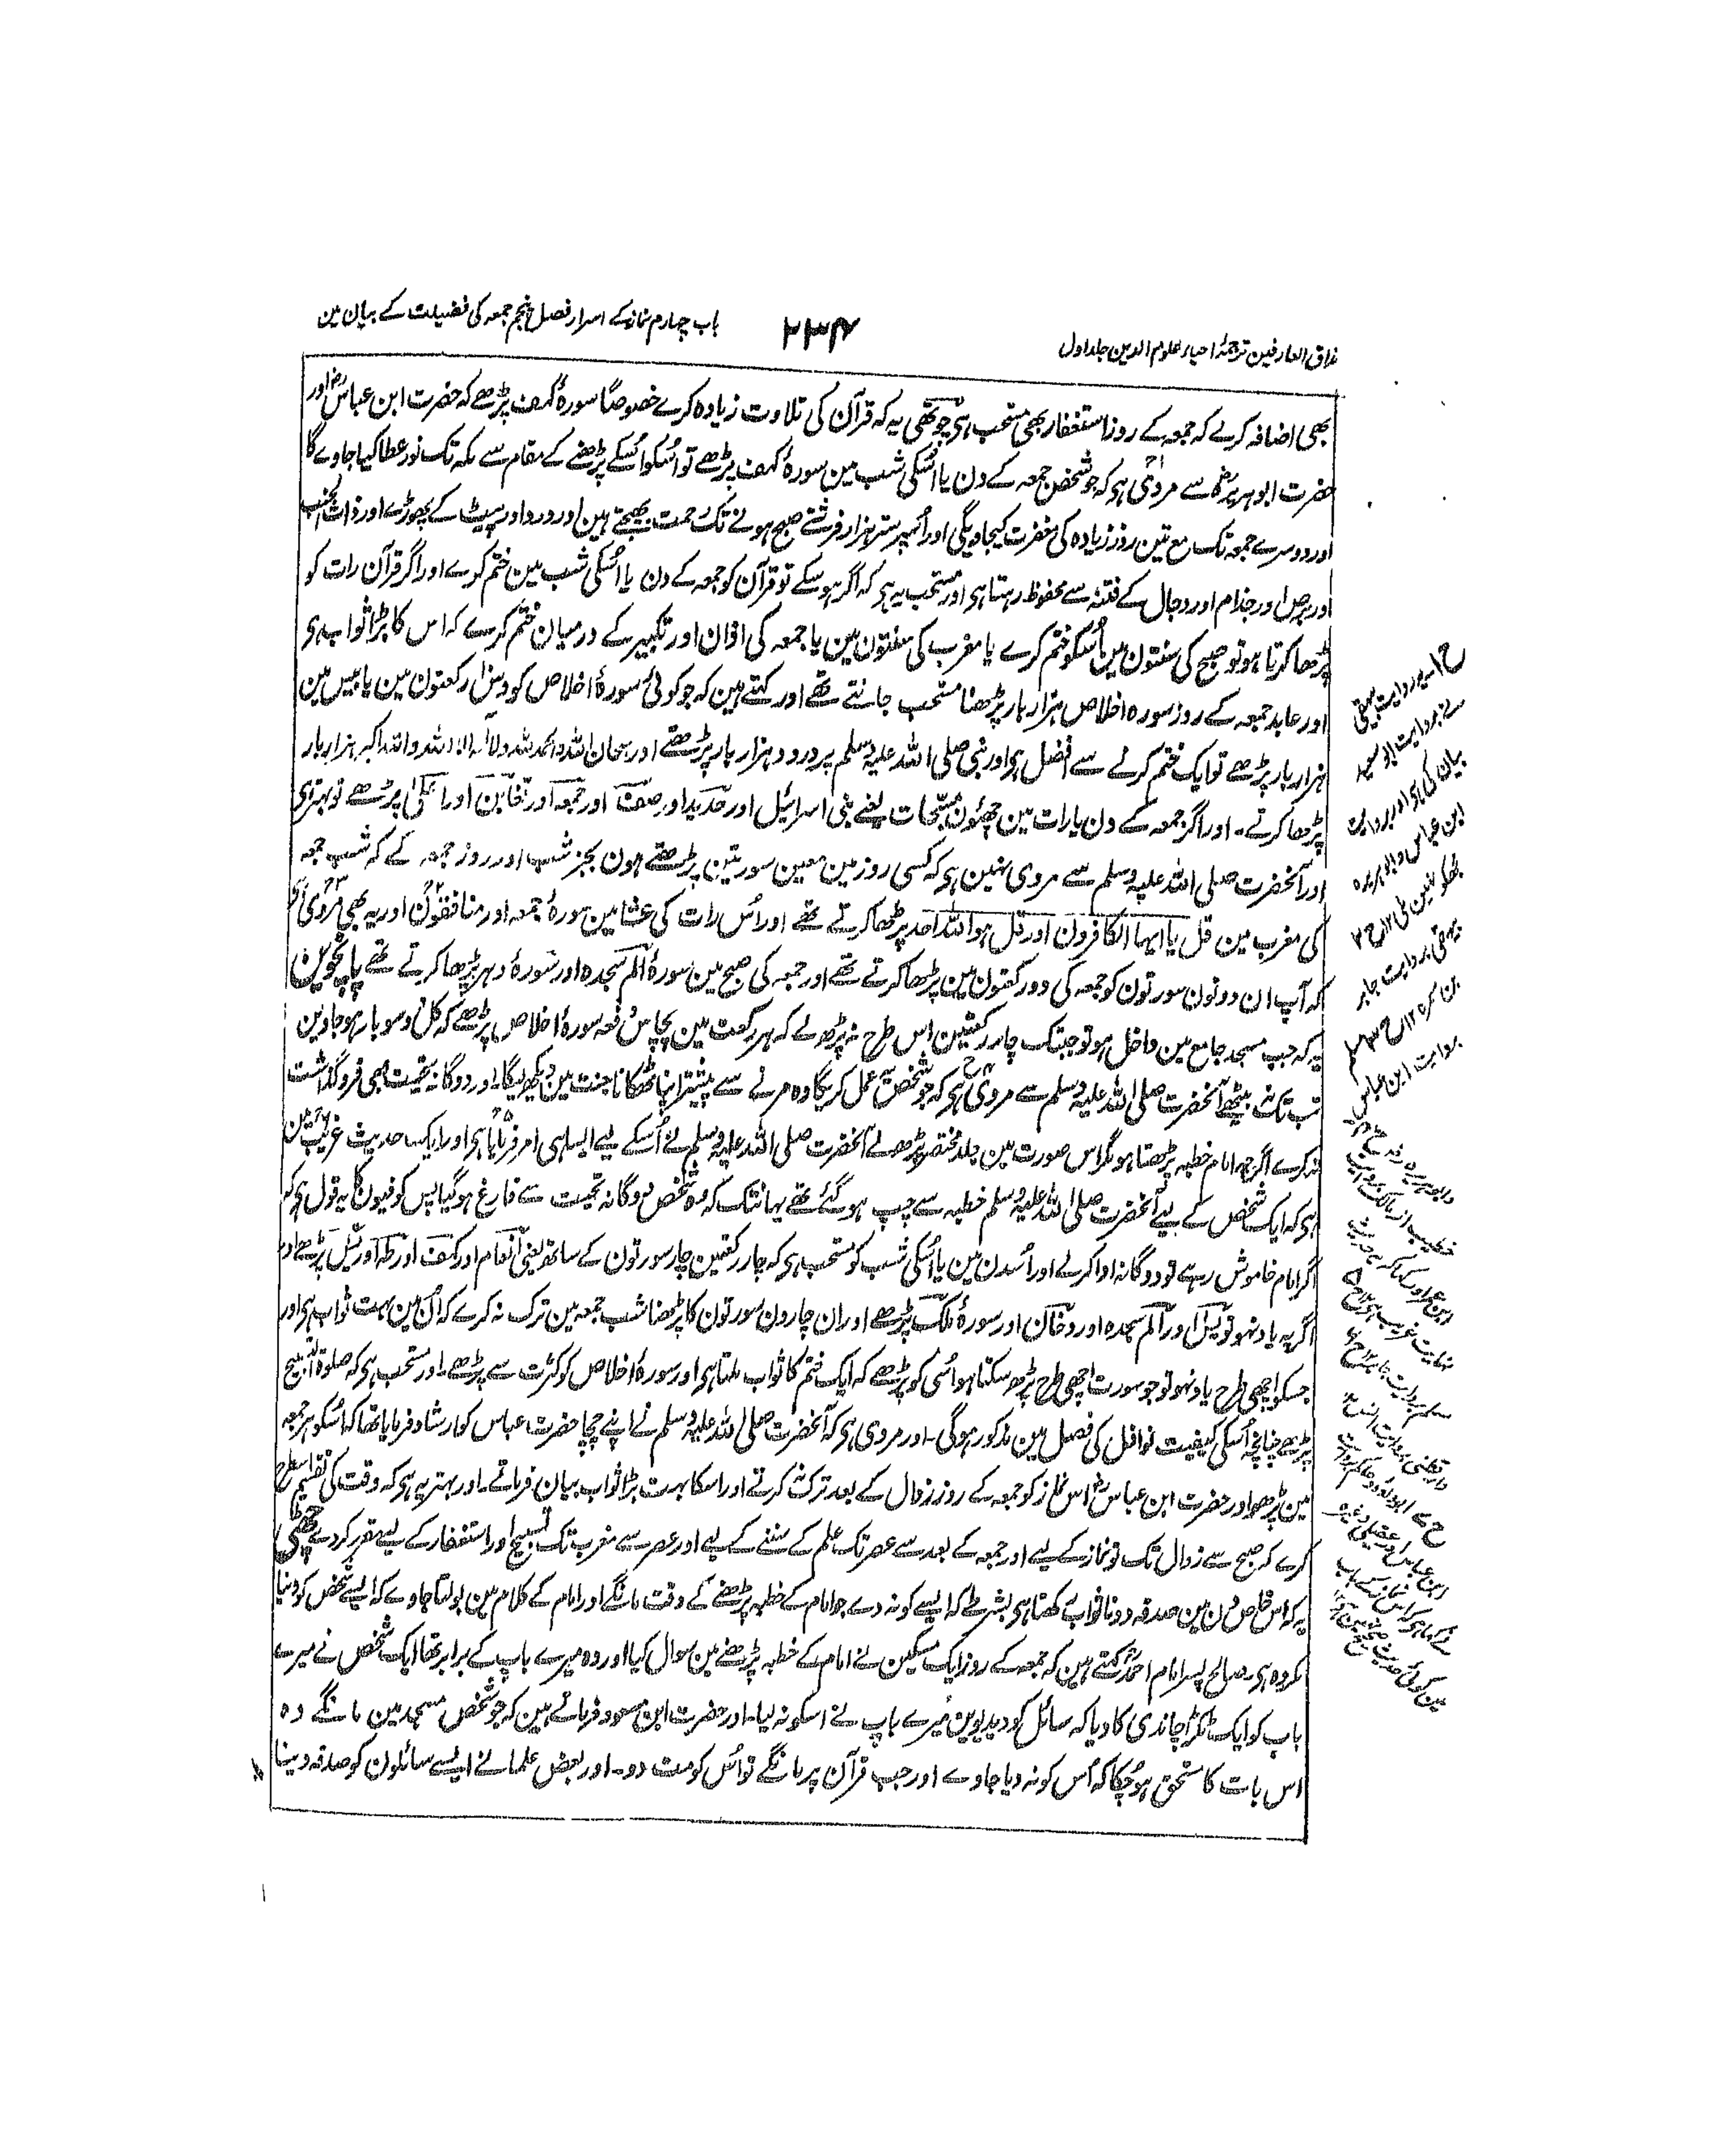 مذاق العارفین ترجمۂ احیاء علوم الدین جلد اول
۲۳۴
باب چہارم نماز کے اسرار فصل پنجم جمعہ کی فضیلت کے بیان مین
بھی اضافہ کرلے کہ جمعہ کے روز استغفار بھی مستحب ہی چوتھی یہ کہ قرآن کی تلاوت زیادہ کرے خصوصًا سورۂ کہف پڑھے کہ حضرت ابن عباسؓ اور
حضرت ابوہریرہؓ سے مروی ہی کہ جو شخص جمعہ کے دن یا اُسکی شب مین سورۂ کہف پڑھے تو اُسکو اُسکے پڑھنے کے مقام سے مکہ تک نور عطا کیا جاوے گا
اور دوسرے جمعہ تک مع تین روز زیادہ کی مغفرت کیجاویگی اور اُسپر ستر ہزار فرشتے صبح ہونے تک رحمت بھیجتے ہین اور درد اور پیٹ کے پھوڑے اور ذات الجنب
اور برص اور جذام اور دجال کے فتنہ سے محفوظ رہتا ہی اور مستحب یہ ہی کہ اگر ہوسکے تو قرآن کو جمعہ کے دن یا اُسکی شب مین ختم کرے اور اگر قرآن رات کو
پڑھا کرتا ہو تو صبح کی سنتون مین اُسکو ختم کرے یا مغرب کی سنتون مین یا جمعہ کی اذان اور تکبیر کے درمیان ختم کرے کہ اس کا بڑا ثواب ہی
اور عابد جمعہ کے روز سورہ اخلاص ہزار بار پڑھنا مستحب جانتے تھے اور کہتے ہین کہ جو کوئی سورۂ اخلاص کو دس رکعتون مین یا بیس مین
ہزار بار پڑھے تو ایک ختم کرنے سے افضل ہی اور نبی صلی اللہ علیہ وسلم پر درود ہزار بار پڑھتے اور سبحان اللہ والحمد للہ ولا الہ الا اللہ واللہ اکبر ہزار بار
پڑھا کرتے۔ اور اگر جمعہ کے دن یا رات مین چھئون مسبحات یعنے بنی اسرائیل اور حدید اور صف اور جمعہ اور تغابن اور اعلیٰ پڑھے تو بہتر ہی
اور آنحضرت صلی اللہ علیہ وسلم سے مروی نہین ہی کہ کسی روز مین معین سورتین پڑھتے ہون بجز شب اور روز جمعہ کے کہ شب جمعہ
کی مغرب مین قل یا ایہا الکافرون اور قل ہو اللہ احد پڑھا کرتے تھے اور اُس رات کی عشا مین سورۂ جمعہ اور منافقون اور یہ بھی مروی ہی
کہ آپ ان دونون سورتون کو جمعہ کی دو رکعتون مین پڑھا کرتے تھے اور جمعہ کی صبح مین سورۂ الم سجدہ اور سورۂ دہر پڑھا کرتے تھے پانچوین
یہ کہ جب مسجد جامع مین داخل ہو تو جبتک چار رکعتین اس طرح نہ پڑھ لے کہ ہر رکعت مین پچاس دفعہ سورۂ اخلاص پڑھے کہ کل دوسو بار ہو جاوین
تب تک نہ بیٹھے آنحضرت صلی اللہ علیہ وسلم سے مروی ہی کہ جو شخص یہ عمل کریگا وہ مرنے سے پیشتر اپنا ٹھکانا جنت مین دیکھ لیگا۔ اور دوگانہ تحیت بھی فروگذاشت
نہ کرے اگرچہ امام خطبہ پڑھتا ہو مگر اس صورت مین جلد مختصر پڑھ لے آنحضرت صلی اللہ علیہ وسلم نے اُسکے لیے ایسا ہی امر فرمایا ہی اور ایک حدیث غریب مین
ہی کہ ایک شخص کے لیے آنحضرت صلی اللہ علیہ وسلم خطبہ سے چپ ہو گئے تھے یہانتک کہ وہ شخص دوگانہ تحیت سے فارغ ہوگیا پس کوفیون کا یہ قول ہی کہ
اگر امام خاموش رہے تو دوگانہ ادا کرلے اور اُسدن مین یا اُسکی شب کو مستحب ہی کہ چار رکعتین چار سورتون کے ساتھ یعنی انعام اور کہف اور طہ اور یٰس پڑھے اور
اگر یہ یاد نہو تو یٰس اور الم سجدہ اور دخان اور سورۂ ملک پڑھے اور ان چارون سورتون کا پڑھنا شب جمعہ مین ترک نہ کرے کہ اُن مین بہت ثواب ہی اور
جسکو اچھی طرح یاد نہو تو جو سورت اچھی طرح پڑھ سکتا ہو اُسی کو پڑھے کہ ایک ختم کا ثواب ملتا ہی اور سورۂ اخلاص کو کثرت سے پڑھے۔ اور مستحب ہی کہ صلوۃ التسبیح
پڑھے چنانچہ اُسکی کیفیت نوافل کی فصل مین مذکور ہوگی۔ اور مروی ہی کہ آنحضرت صلی اللہ علیہ وسلم نے اپنے چچا حضرت عباس کو ارشاد فرمایا تھا کہ اُسکو ہر جمعہ
مین پڑھو اور حضرت ابن عباسؓ اس نماز کو جمعہ کے روز زوال کے بعد ترک نہ کرتے اور اسکا بہت بڑا ثواب بیان فرماتے۔ اور بہتر یہ ہی کہ وقت کی تقسیم اسطرح
کرے کہ صبح سے زوال تک تو نماز کے لیے اور جمعہ کے بعد سے عصر تک علم کے سننے کے لیے اور عصر سے مغرب تک تسبیح اور استغفار کے لیے مقرر کردے چھٹی
یہ کہ اس خاص دن مین صدقہ دونا ثواب رکھتا ہی بشرطیکہ ایسے کو نہ دے جو امام کے خطبہ پڑھنے کے وقت مانگے اور امام کے کلام مین بولتا جاوے کہ ایسے شخص کو دینا
مکروہ ہی۔ صالح پسر امام احمدؒ کہتے ہین کہ جمعہ کے روز ایک مسکین نے امام کے خطبہ پڑھنے مین سوال کیا اور وہ میرے باپ کے برابر تھا ایک شخص نے میرے
باپ کو ایک ٹکڑا چاندی کا دیا کہ سائل کو دیدیوین میرے باپ نے اسکو نہ لیا۔ اور حضرت ابن مسعود فرماتے ہین کہ جو شخص مسجد مین مانگے وہ
اس بات کا مستحق ہو چکا کہ اُس کو نہ دیا جاوے اور جب قرآن پر مانگے تو اُس کو مت دو۔ اور بعض علما نے ایسے سائلون کو صدقہ دینا
بیہقی
نے بروایت ابو سعید
بیان کی ہی اور بروایت
ابن عباس و ابوہریرہ
بیہقی بروایت جابر
بن سمرہ ۱۲
بروایت ابن عباس